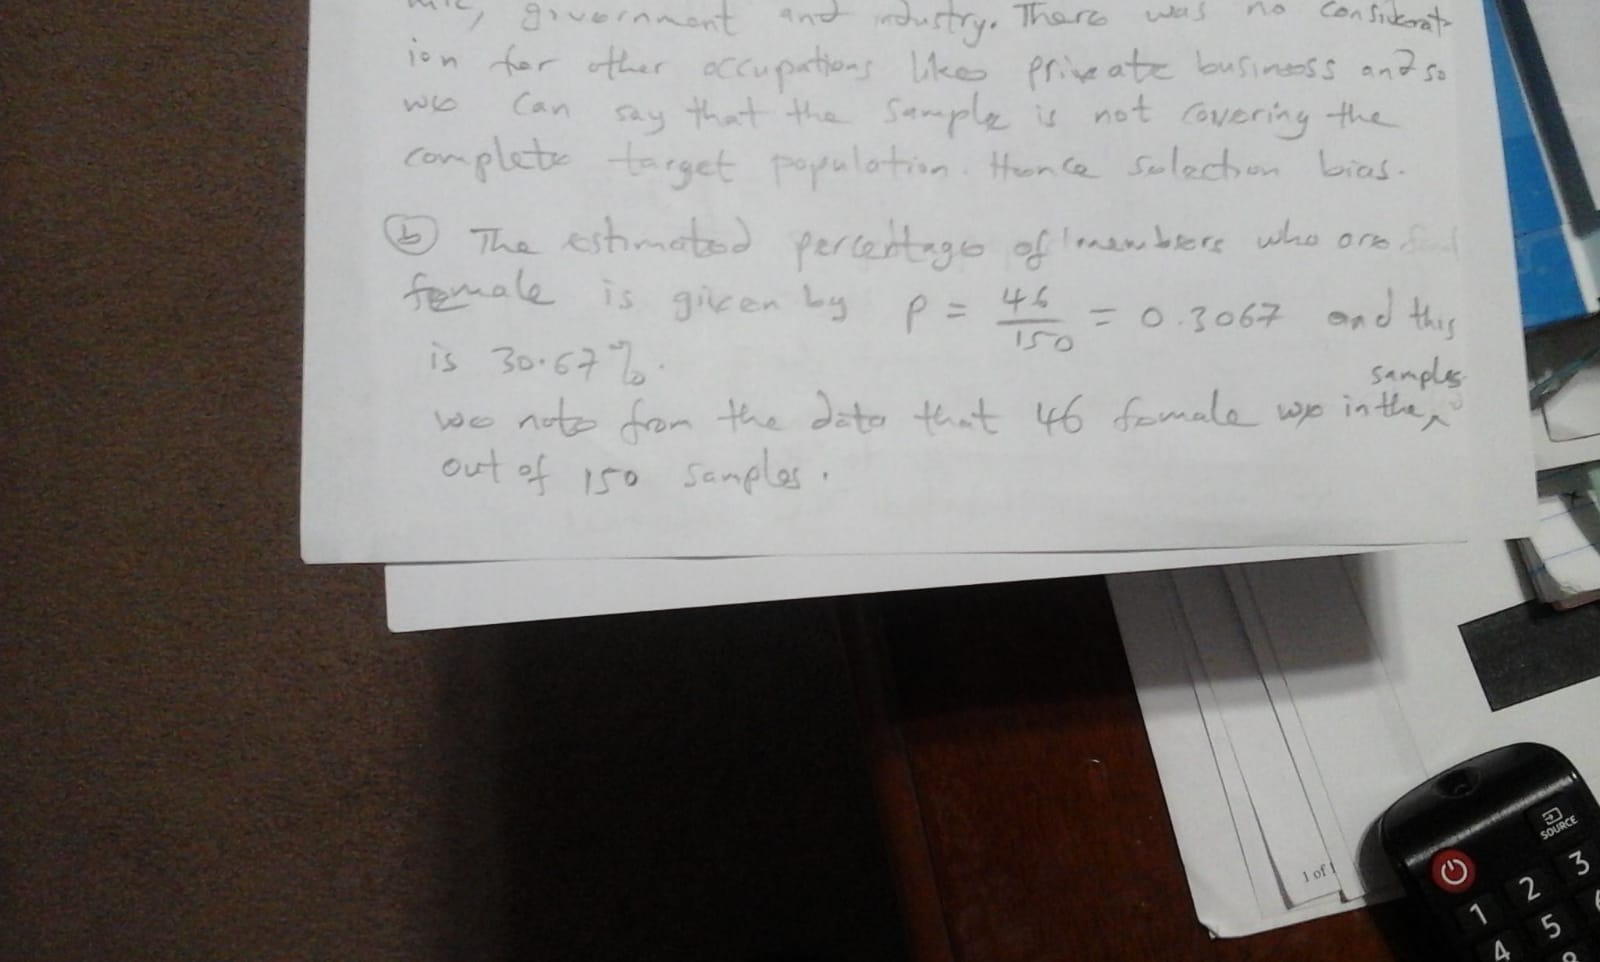 government and industry. There was no considerat-
ion for other occupations like private business and so
we can say that the sample is not covering the
complete target population. Hence selection bias.
(b) The estimated percentage of members who are
female is given by p = 46/150 = 0.3067 and this
is 30.67%.
samples
we note from the data that 46 female we in the ^
out of 150 samples.
1 of 1
SOURCE
1 2 3
4 5